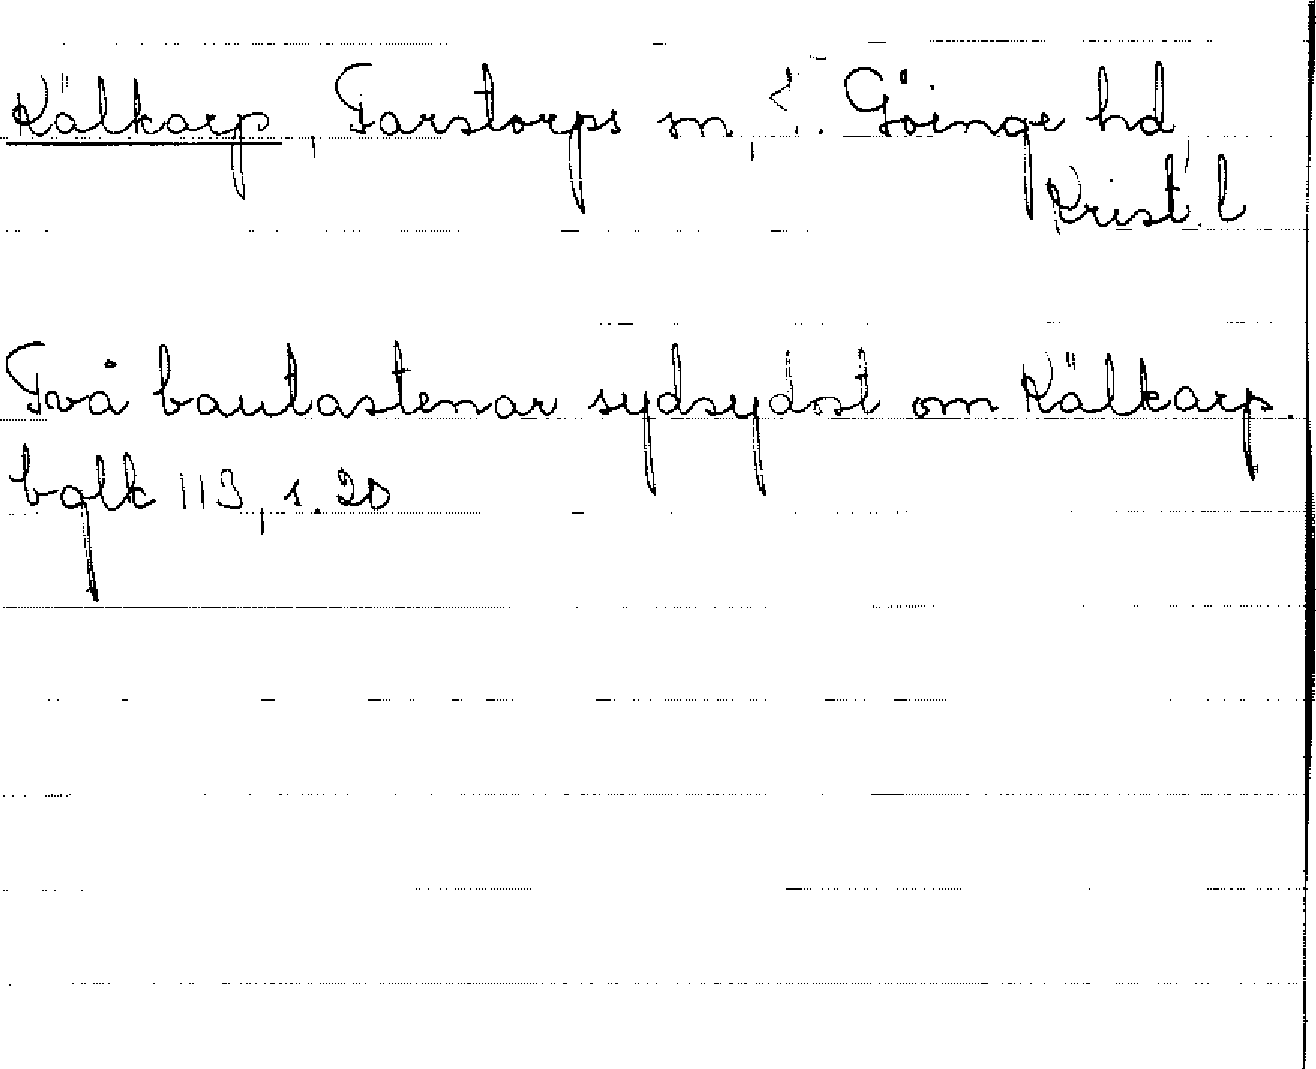 Kälkarp, Farstorps sn, Göinge hd
Krist. l
Två bautastenar sydsydost om Kälkarp.
bglk 113, s. 20